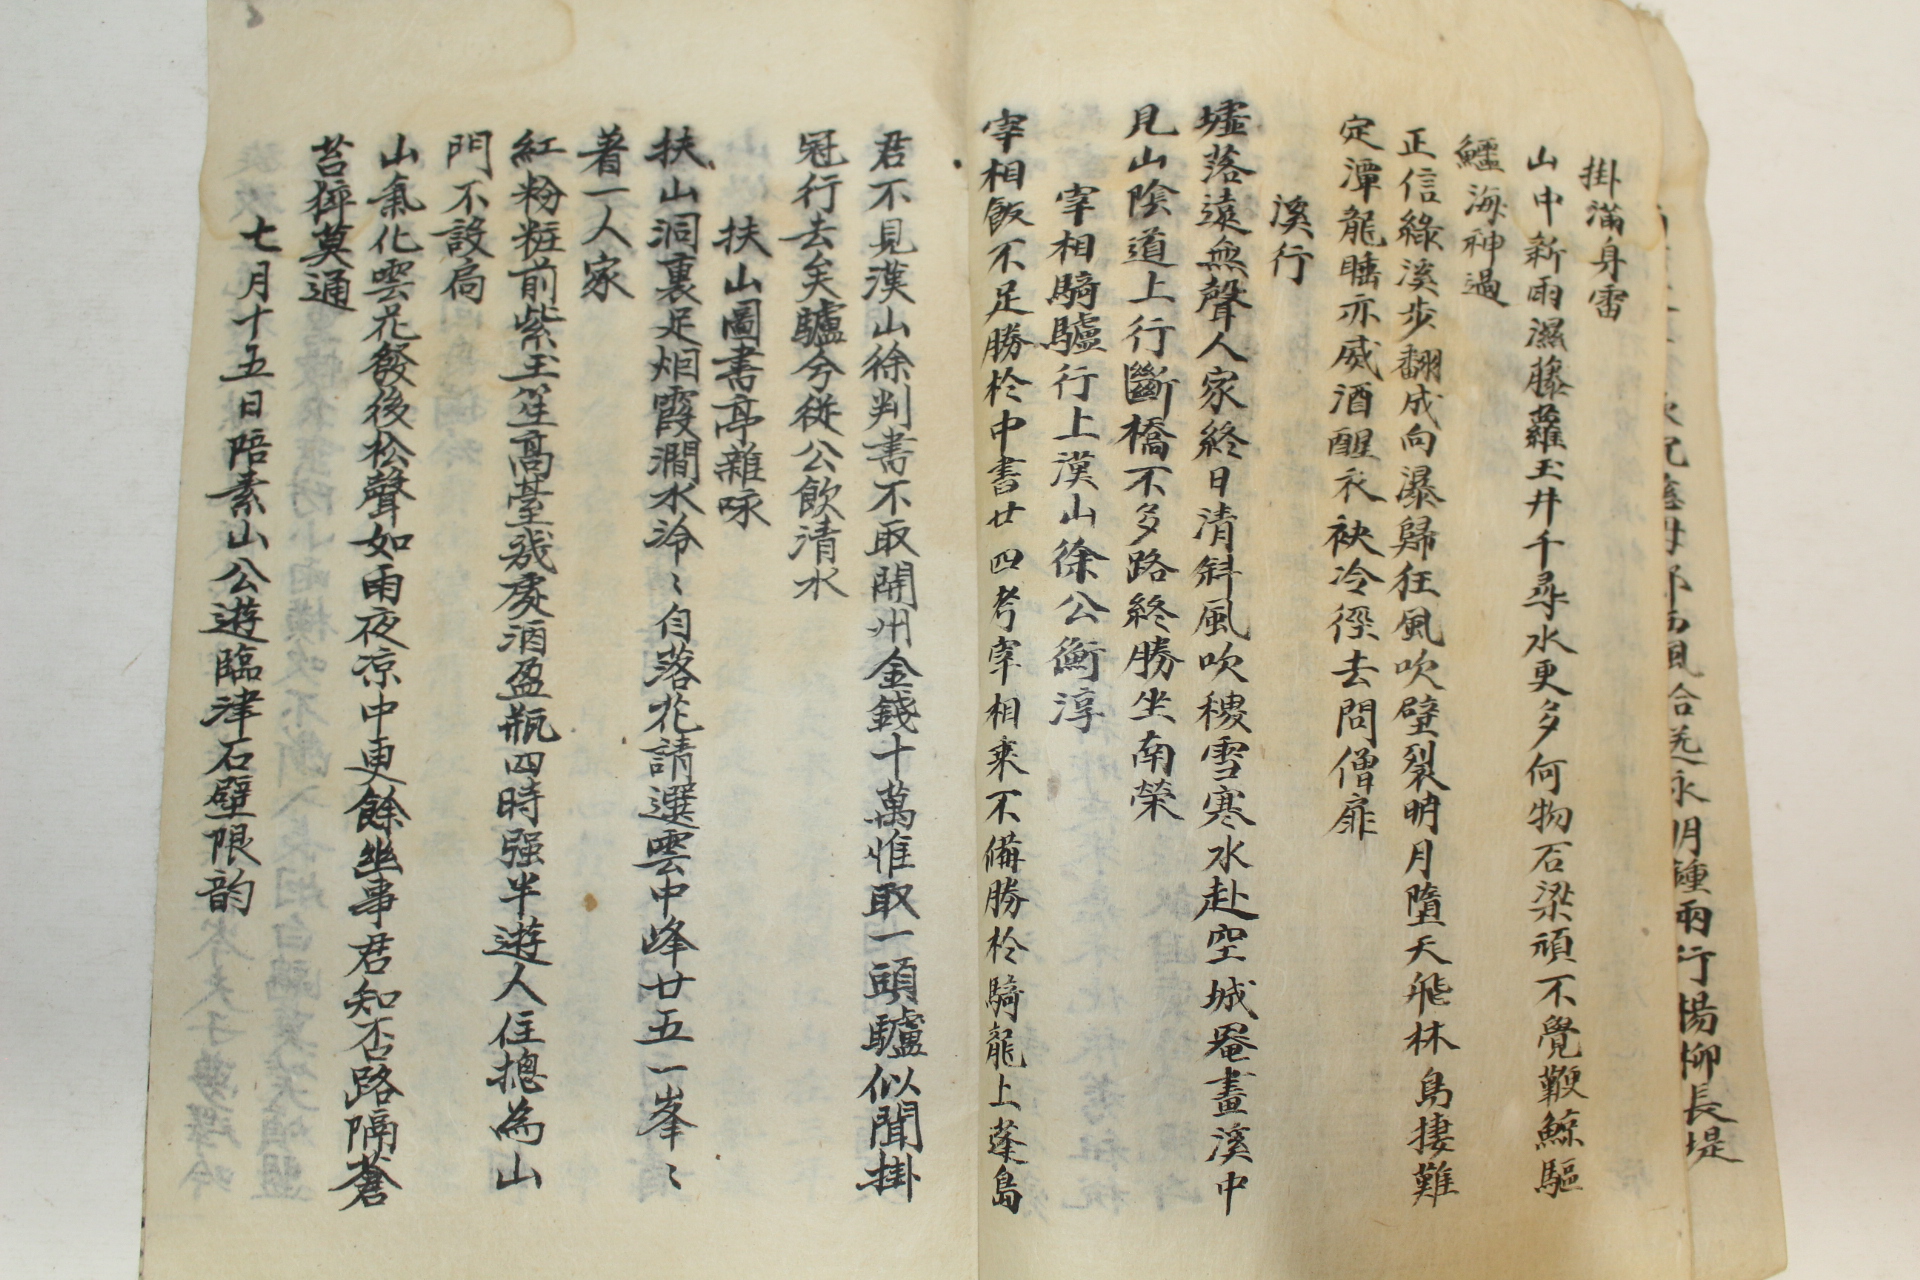 掛滿身雷
山中新雨濕藤蘿玉井千尋水更多何物石梁頑不覺鞭鯨驅
鱷海神過
正信綠溪步翻成向瀑歸狂風吹壁裂明月墮天飛林鳥捿難
定潭龍睡亦威酒醒衣袂冷徑去問僧扉
溪行
墟落遠無聲人家終日清斜風吹穗雪寒水赴空城罨畫溪中
見山陰道上行斷橋不多路終勝坐南榮
宰相騎驢行上漢山徐公衡淳
宰相飯不足勝於中書廿四考宰相乘不備勝於騎龍上蓬島
君不見漢山徐判書不取開州金錢十萬惟取一頭驢似聞掛
冠行去矣驢兮從公飮清水
扶山圖書亭雜咏
扶山洞裏足烟霞澗水泠〻自落花請選雲中峰廿五一峯〻
著一人家
紅粉粧前紫玉笙高臺幾處酒盈瓶四時强半遊人住摠為山
門不設扃
山氣化雲花發後松聲如雨夜凉中更餘幽事君知否路隔蒼
苔獐莫通
七月十五日陪素山公遊臨津石壁限韵